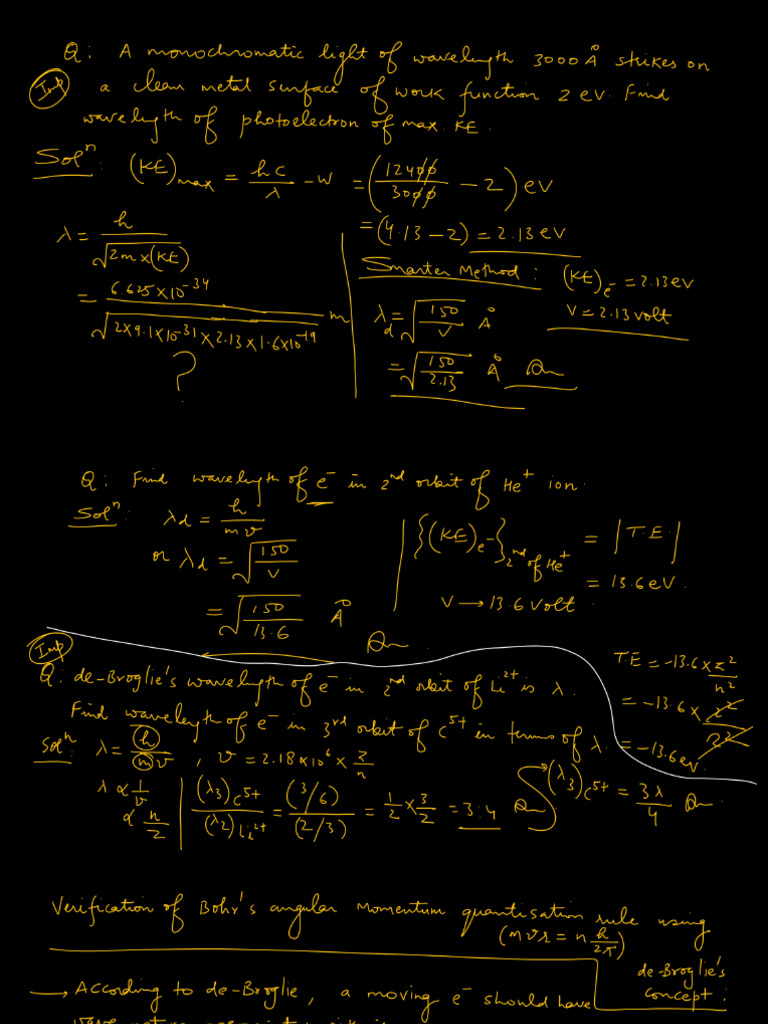 Q: A monochromatic light of wavelength 3000 Å strikes on
Imp a clean metal surface of work function 2 eV. Find
wavelength of photoelectron of max. KE.
Solⁿ: (KE)max = hc/λ - W = (12400/3000 - 2) eV
= (4.13 - 2) = 2.13 eV
λ = h/√(2m×(KE))
= 6.625×10⁻³⁴/√(2×9.1×10⁻³¹×2.13×1.6×10⁻¹⁹) m
?
Smarter Method: (KE)e⁻ = 2.13 eV
V = 2.13 volt
λd = √(150/V) Å
= √(150/2.13) Å Ans
Q: Find wavelength of e⁻ in 2nd orbit of He⁺ ion.
Solⁿ: λd = h/mv
or λd = √(150/V)
= √(150/13.6) Å Ans.
{(KE)e⁻}2nd of He⁺ = |T.E.|
= 13.6 eV.
V → 13.6 volt.
T.E = -13.6 × z²/n²
= -13.6 × 2²/2²
= -13.6 eV
Imp
Q: de-Broglie's wavelength of e⁻ in 2nd orbit of Li²⁺ is λ.
Find wavelength of e⁻ in 3rd orbit of C⁵⁺ in terms of λ.
Solⁿ: λ = h/mv , v = 2.18×10⁶ × z/n
λ ∝ 1/v
∝ n/z
(λ3)C⁵⁺/(λ2)Li²⁺ = (3/6)/(2/3) = 1/2 × 3/2 = 3:4 Ans
(λ3)C⁵⁺ = 3λ/4 Ans
Verification of Bohr's angular momentum quantisation rule using
(mvr = n h/2π)
de-Broglie's
concept:
→ According to de-Broglie, a moving e⁻ should have